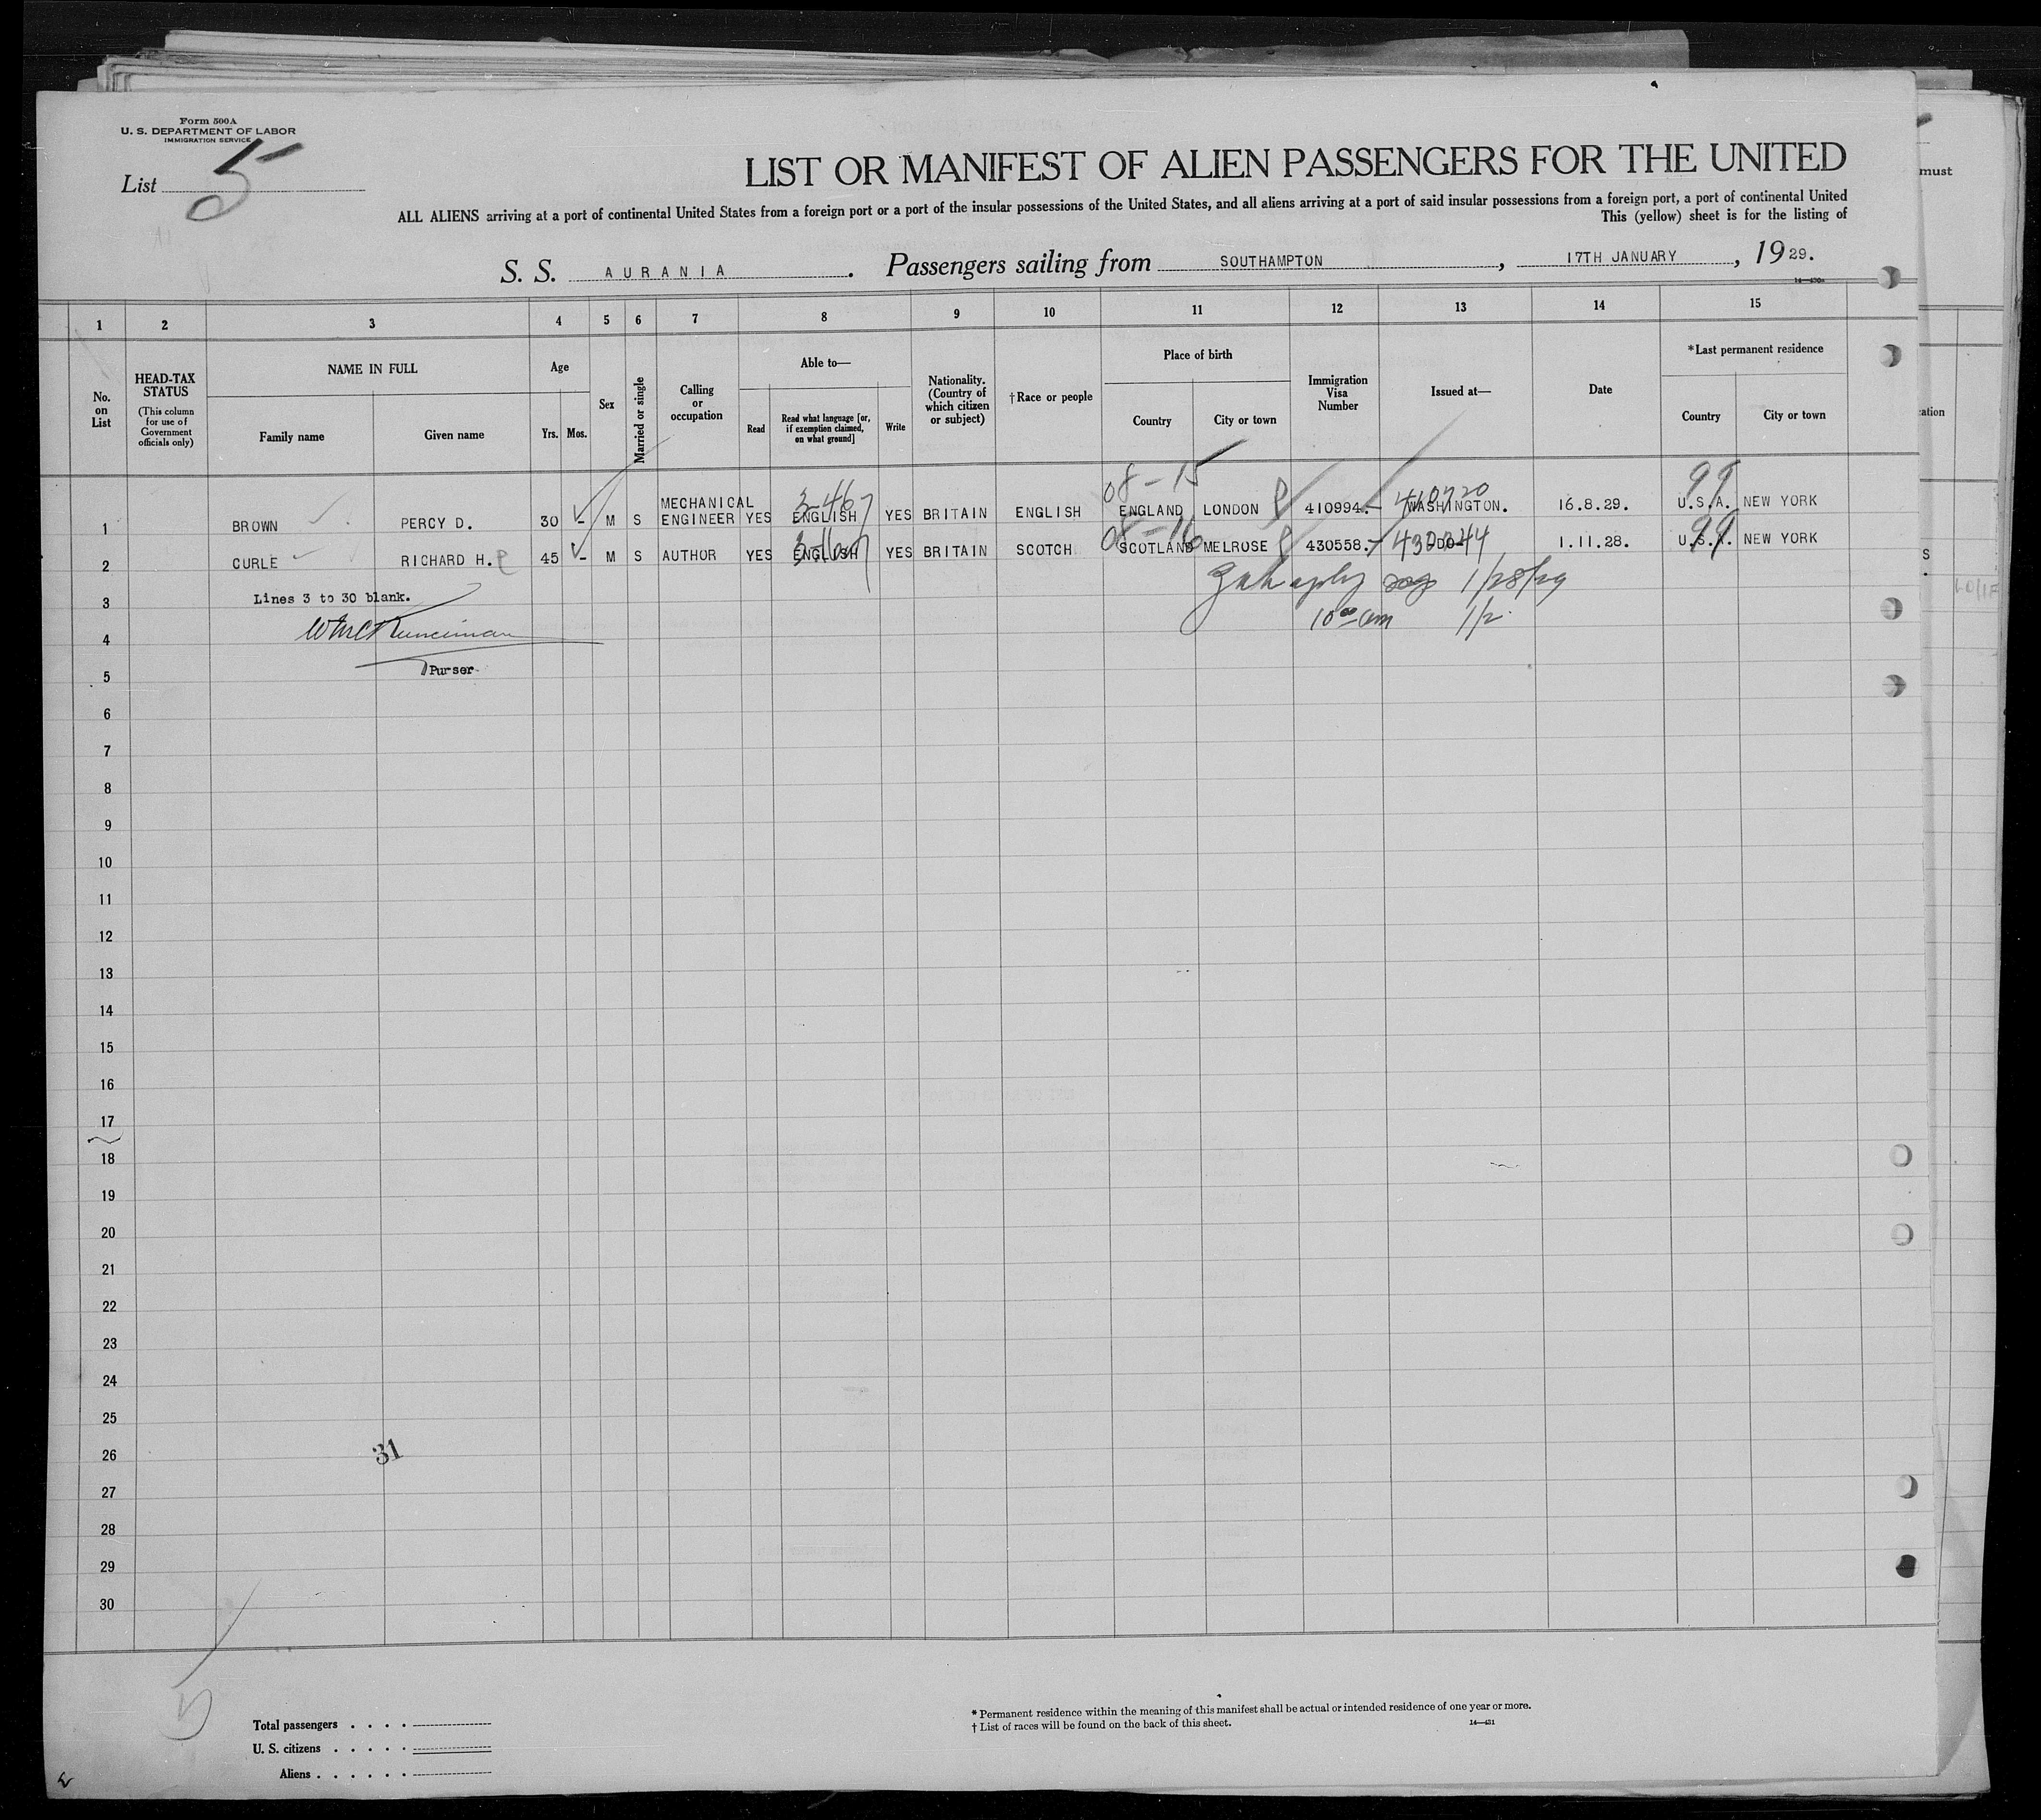 Form 500A
U. S. DEPARTMENT OF LABOR
IMMIGRATION SERVICE
List 5
LIST OR MANIFEST OF ALIEN PASSENGERS FOR THE UNITED
must
ALL ALIENS arriving at a port of continental United States from a foreign port or a port of the insular possessions of the United States, and all aliens arriving at a port of said insular possessions from a foreign port, a port of continental United
This (yellow) sheet is for the listing of
S. S. AURANIA. Passengers sailing from SOUTHAMPTON, 17TH JANUARY, 1929.
1 2 3 4 5 6 7 8 9 10 11 12 13 14 15
No. on List
HEAD-TAX STATUS
(This column for use of Government officials only)
NAME IN FULL
Family name Given name
Age
Yrs. Mos.
Sex
Married or single
Calling or occupation
Able to—
Read
Read what language [or, if exemption claimed, on what ground]
Write
Nationality. (Country of which citizen or subject)
†Race or people
Place of birth
Country City or town
Immigration Visa Number
Issued at—
Date
*Last permanent residence
Country City or town
08-15 99
3-467 410720
1 BROWN PERCY D. 30 - M S MECHANICAL ENGINEER YES ENGLISH YES BRITAIN ENGLISH ENGLAND LONDON 410994. WASHINGTON. 16.8.29. U.S.A. NEW YORK
08-16 430344 99
2 CURLE RICHARD H. 45 - M S AUTHOR YES ENGLISH YES BRITAIN SCOTCH SCOTLAND MELROSE 430558. -DO- 1.11.28. U.S.A. NEW YORK
S
1/28/29
3 Lines 3 to 30 blank.
10 00 am 1/2
4
5 Purser
6
7
8
9
10
11
12
13
14
15
16
17
18
19
20
21
22
23
24
25
26
31
27
28
29
30
Total passengers . . . .
U. S. citizens . . . . .
Aliens . . . . . .
* Permanent residence within the meaning of this manifest shall be actual or intended residence of one year or more.
† List of races will be found on the back of this sheet.
14—431